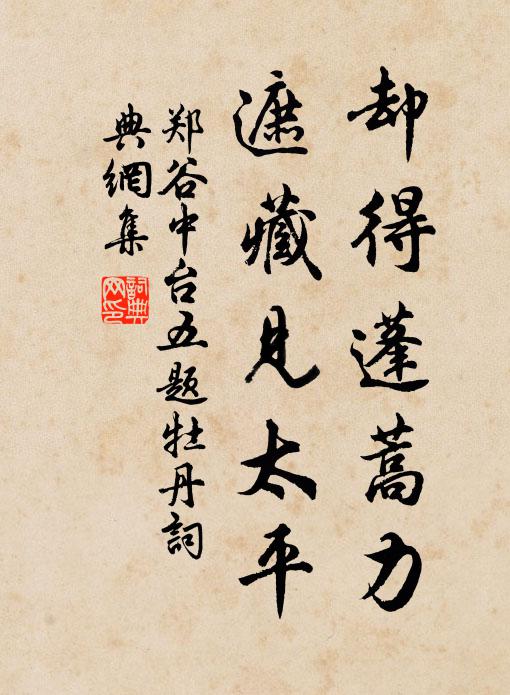 却得蓬蒿力
遮藏見太平
郑谷中台五题牡丹詞
典網集
詞典网印